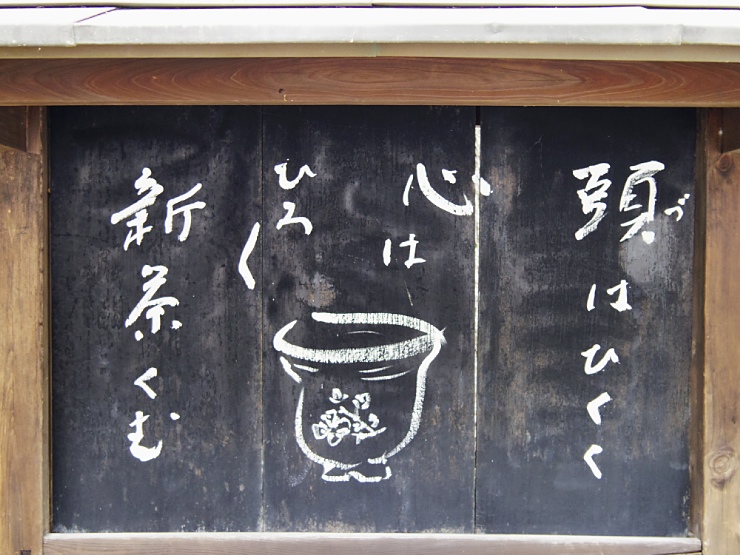 頭はひくく
づ
心は
ひろく
新茶くむ